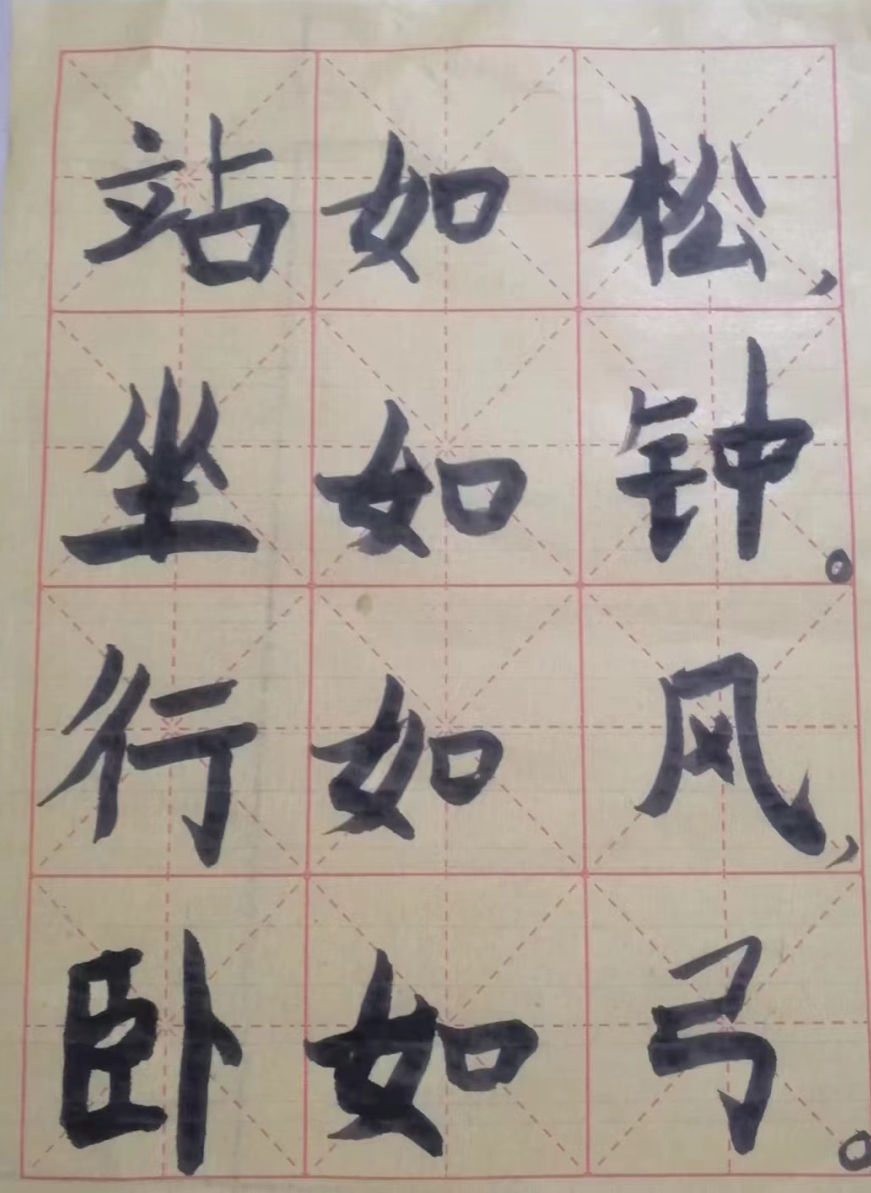 站如松，
坐如钟。
行如风，
卧如弓。